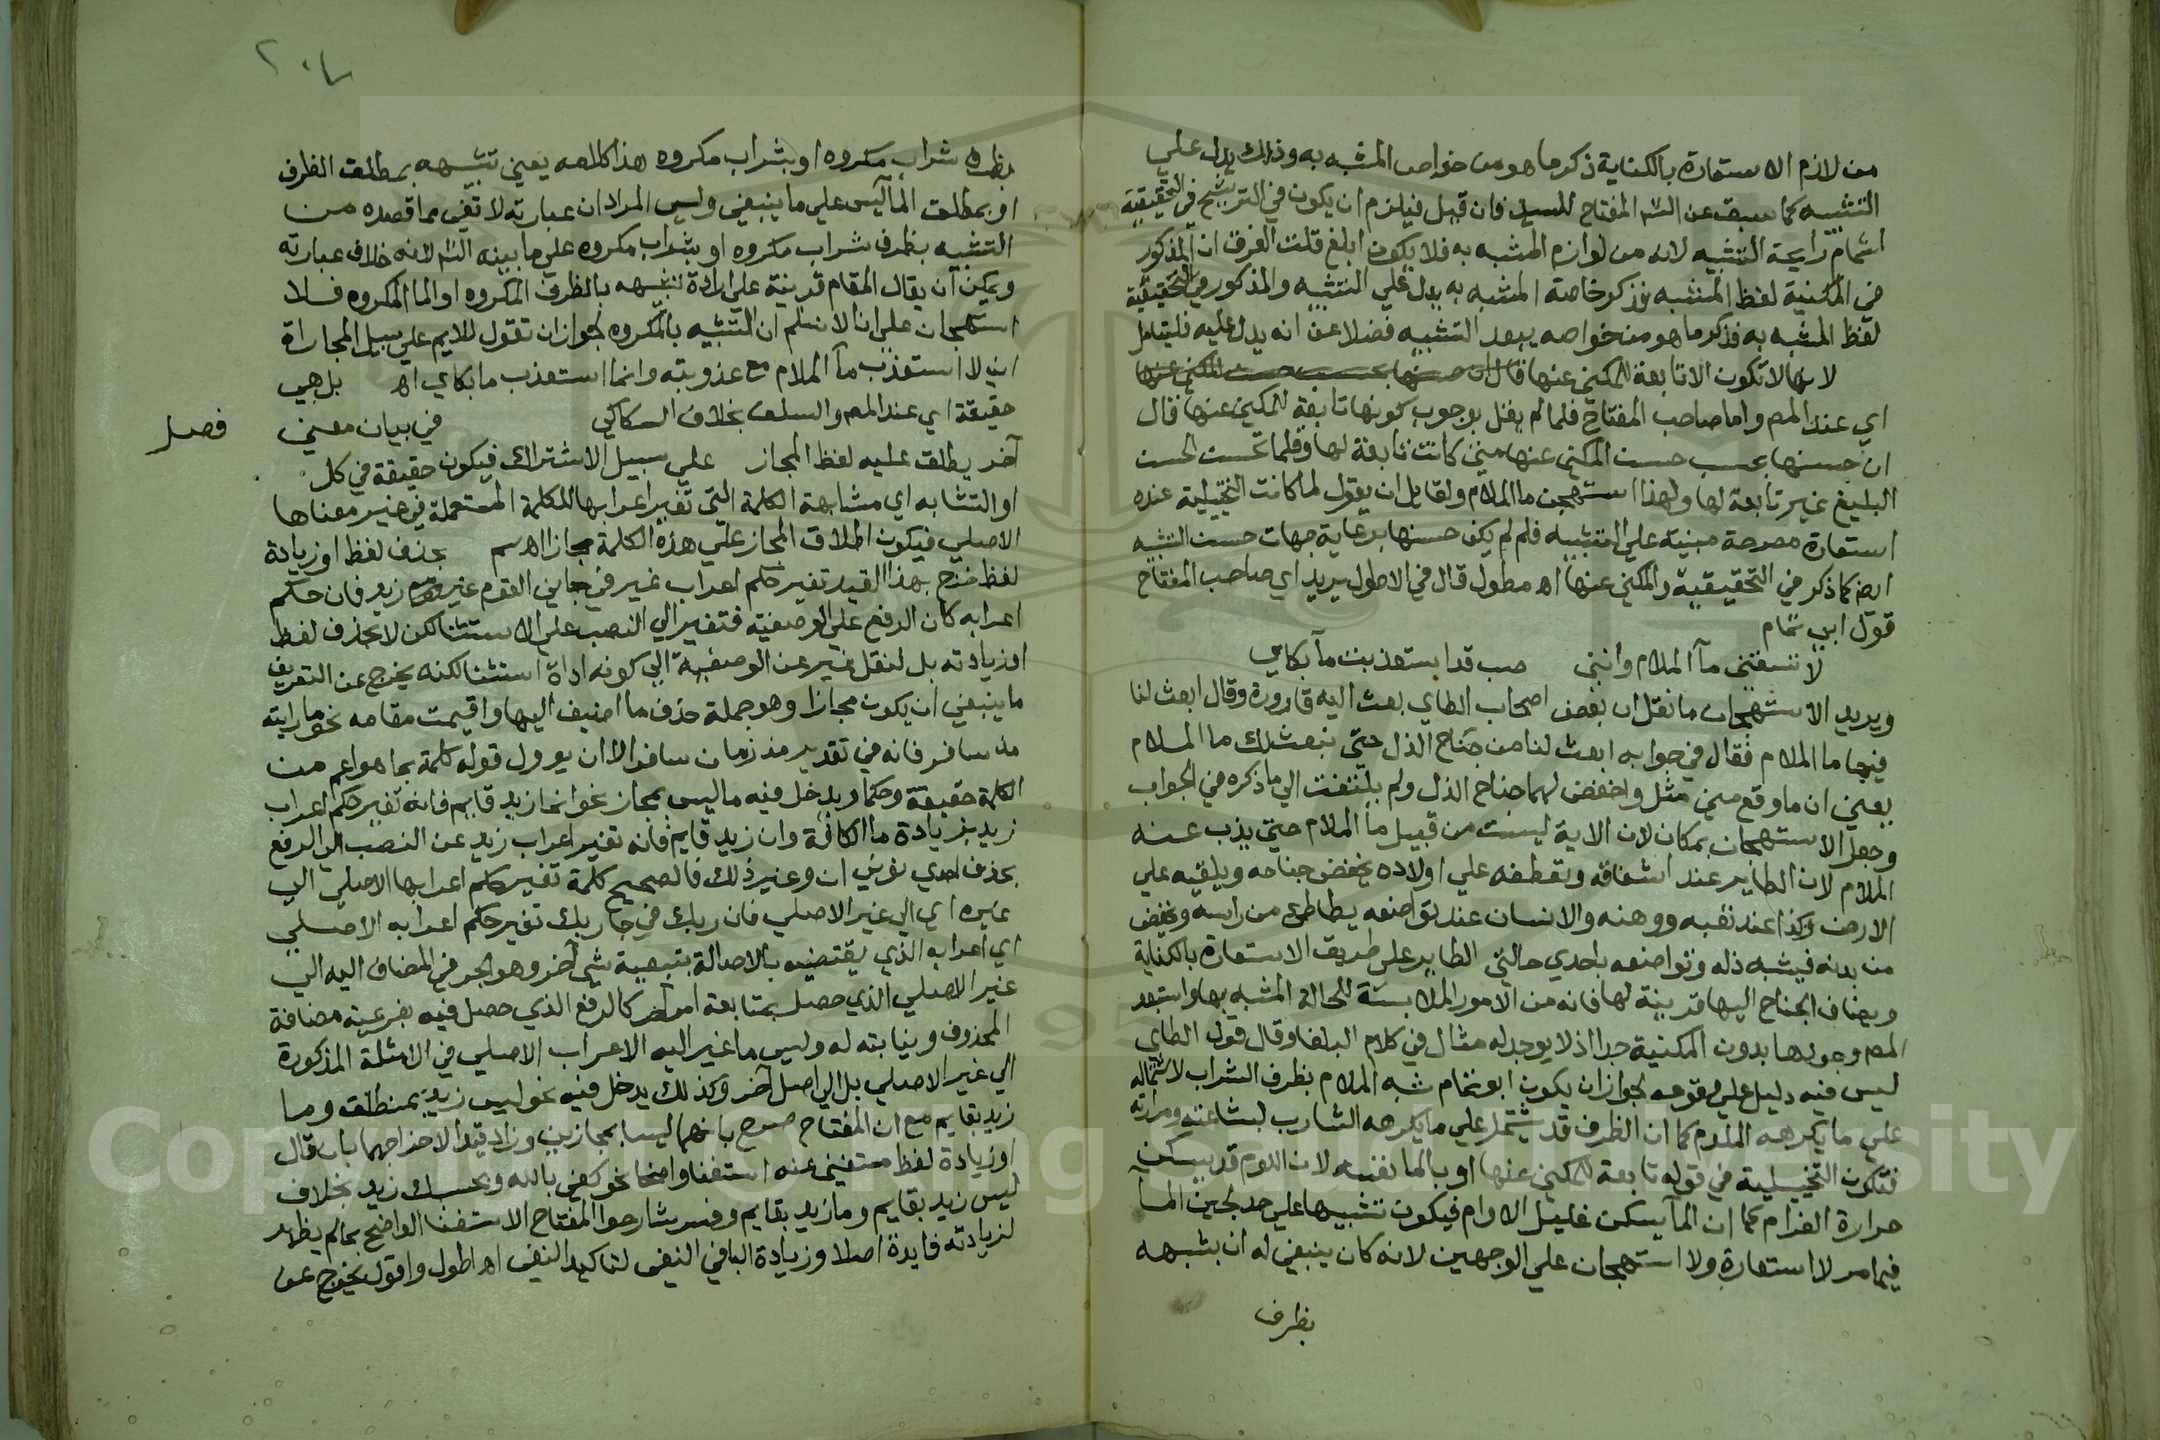 من لازم الاستعارة بالكناية ذكر ما هو من خواص المشبه به وذلك يدل علي
التشبيه كما سبق عن الش المفتاح فان قيل فيلزم ان يكون في الترشيح في التحقيقية
اشمام رايحة التشبيه لانه من لوازم المشبه به فلا يكون ابلغ قلت الفرق ان المذكور
في المكنية لفظ المشبه وذكر خاصة المشبه به يدل علي التشبيه والمذكور في التحقيقية
لفظ المشبه به وذكر ما هو من خواصه يبعد التشبيه فضلا عن انه يدل عليه فليتامل
لانها لا تكون الا تابعة للمكني عنها
اي عند المص واما صاحب المفتاح فلما لم يقل بوجوب كونها تابعة للمكني عنها قال
ان حسنها بحسب حسن المكني عنها متي كانت تابعة لها وقلما تحسن الحسن
البليغ غير تابعة لها ولهذا استهجن ما الملام ولقايل ان يقول لما كانت التخييلية عنده
استعارة مصرحة مبنية علي التشبيه فلم لم يكن حسنها برعاية جهات حسن التشبيه
ايض كما ذكر في التحقيقية والمكني عنها اه مطول قال في الاطول يريد اي صاحب المفتاح
قول ابي تمام
لا تسقني مآ الملام وانني صب قد استعذبت مآ بكاي
ويريد الاستهجان ما نقل ان بعض اصحاب الطاي بعث اليه قارورة وقال ابعث لنا
فيها ما الملام فقال في جوابه ابعث لنا من جناح الذل حتي نبعث لك ما الملام
يعني ان ما وقع مني مثل واخفض لهما جناح الذل ولم يلتفت الي ما ذكره في الجواب
وجعل الاستهجان بمكان لان الاية ليست من قبيل ما الملام حتي يذب عنه
الملام لان الطاير عند اشفاقه وتعطفه علي اولاده يخفض جناحه ويلقيه علي
الارض وكذا عند تعبه ووهنه والانسان عند تواضعه يطاطئ من راسه ويخفض
من بدنه فيشبه ذله وتواضعه باحدي حالتي الطاير علي طريق الاستعارة بالكناية
ويضاف الجناح اليها قرينة لها فانه من الامور الملابسة للحالة المشبه بها واستبعد
المص وجودها بدون المكنية جدا اذ لا يوجد له مثال في كلام البلغا وقال قول الطاي
ليس فيه دليل علي وقوعه لجواز ان يكون ابو تمام شبه الملام بظرف الشراب لاشتماله
علي ما يكرهه الملام كما ان الظرف قد يشتمل علي ما يكرهه الشارب لبشاعته ومرارته
فتكون التخييلية في قوله تابعة للمكني عنها او بالما نفسه لان اللوم قد يسكن
حرارة الغرام كما ان المآ يسكن غليل الاوام فيكون تشبيها علي حد لجين المآ
فيما مر لا استعارة ولا استهجان علي الوجهين لانه كان ينبغي له ان يشبهه
بظرف
٢٠٤
بظرف شراب مكروه او بشراب مكروه هذا كلامه يعني تشبهه بمطلق الظرف
او بمطلق المآ ليس علي ما ينبغي وليس المراد ان عبارته لا تفي بما قصده من
التشبيه بظرف شراب مكروه او بشراب مكروه علي ما بينه الش لانه خلاف عبارته
ويمكن ان يقال المقام قرينة علي ارادة تشبهه بالظرف المكروه او الما المكروه فلا
استهجان علي انا لا نسلم ان التشبيه بالمكروه لجواز ان تقول للايم علي سبيل المجاراة
اني لا استعذب مآ الملام مع عذوبته وانما استعذب ما بكاي اه بل هي
حقيقة اي عند المص والسلف بخلاف السكاكي في بيان معني
فصل
آخر يطلق عليه لفظ المجاز علي سبيل الاشتراك فيكون حقيقة في كل
او التشابه اي مشابهة الكلمة التي تغير اعرابها للكلمة المستعملة في غير معناها
الاصلي فيكون اطلاق المجاز علي هذه الكلمة مجازا اه سم بحذف لفظ او زيادة
لفظ خرج بهذا القيد تغير حكم اعراب غير في جاني القوم غير زيد فان حكم
اعرابه كان الرفع علي الوصفية فتغير الي النصب علي الاستثنا لكن لا بحذف لفظ
او زيادته بل لنقل غير عن الوصفية الي كونه اداة استثنا لكنه يخرج عن التعريف
ما ينبغي ان يكون مجازا وهو جملة حذف ما اضيف اليها واقيمت مقامه نحو ما رايته
مذ سافر فانه في تقدير مذ زمان سافر الا ان يوول قوله كلمة بما هو اعم من
الكلمة حقيقة وحكما ويدخل فيه ما ليس بمجاز نحو انما زيد قايم فانه تغير حكم اعراب
زيد بزيادة ما الكافة وان زيد قايم فانه تغير اعراب زيد عن النصب الي الرفع
بحذف احدي نوني ان وغير ذلك فالصحيح كلمة تغير حكم اعرابها الاصلي الي
غيره اي الي غير الاصلي فان ربك في جا ربك تغير حكم اعرابه الاصلي
اي اعرابه الذي يقتضيه بالاصالة بتبعية شي آخر وهو الجر في المضاف اليه الي
غير الاصلي الذي حصل بمتابعة امر آخر كالرفع الذي حصل فيه بفرعية مضافة
المحذوف ونيابته له وليس ما غير اليه الاعراب الاصلي في الامثلة المذكورة
الي غير الاصلي بل الي اصل آخر وكذلك يدخل فيه نحو ليس زيد بمنطلق وما
زيد بقايم مع ان المفتاح صرح بانهما ليسا بمجازين وزاد قيدا لاخراجهما بان قال
او زيادة لفظ مستغني عنه استغنا واضحا نحو كفي بالله وبحسبك زيد بخلاف
ليس زيد بقايم وما زيد بقايم وفسر شارحوا المفتاح الاستغنا الواضح بما لم يظهر
لزيادته فايدة اصلا وزيادة البا في النفي لتاكيد النفي اه اطول واقول يخرج عن
Copyright © King Saud University